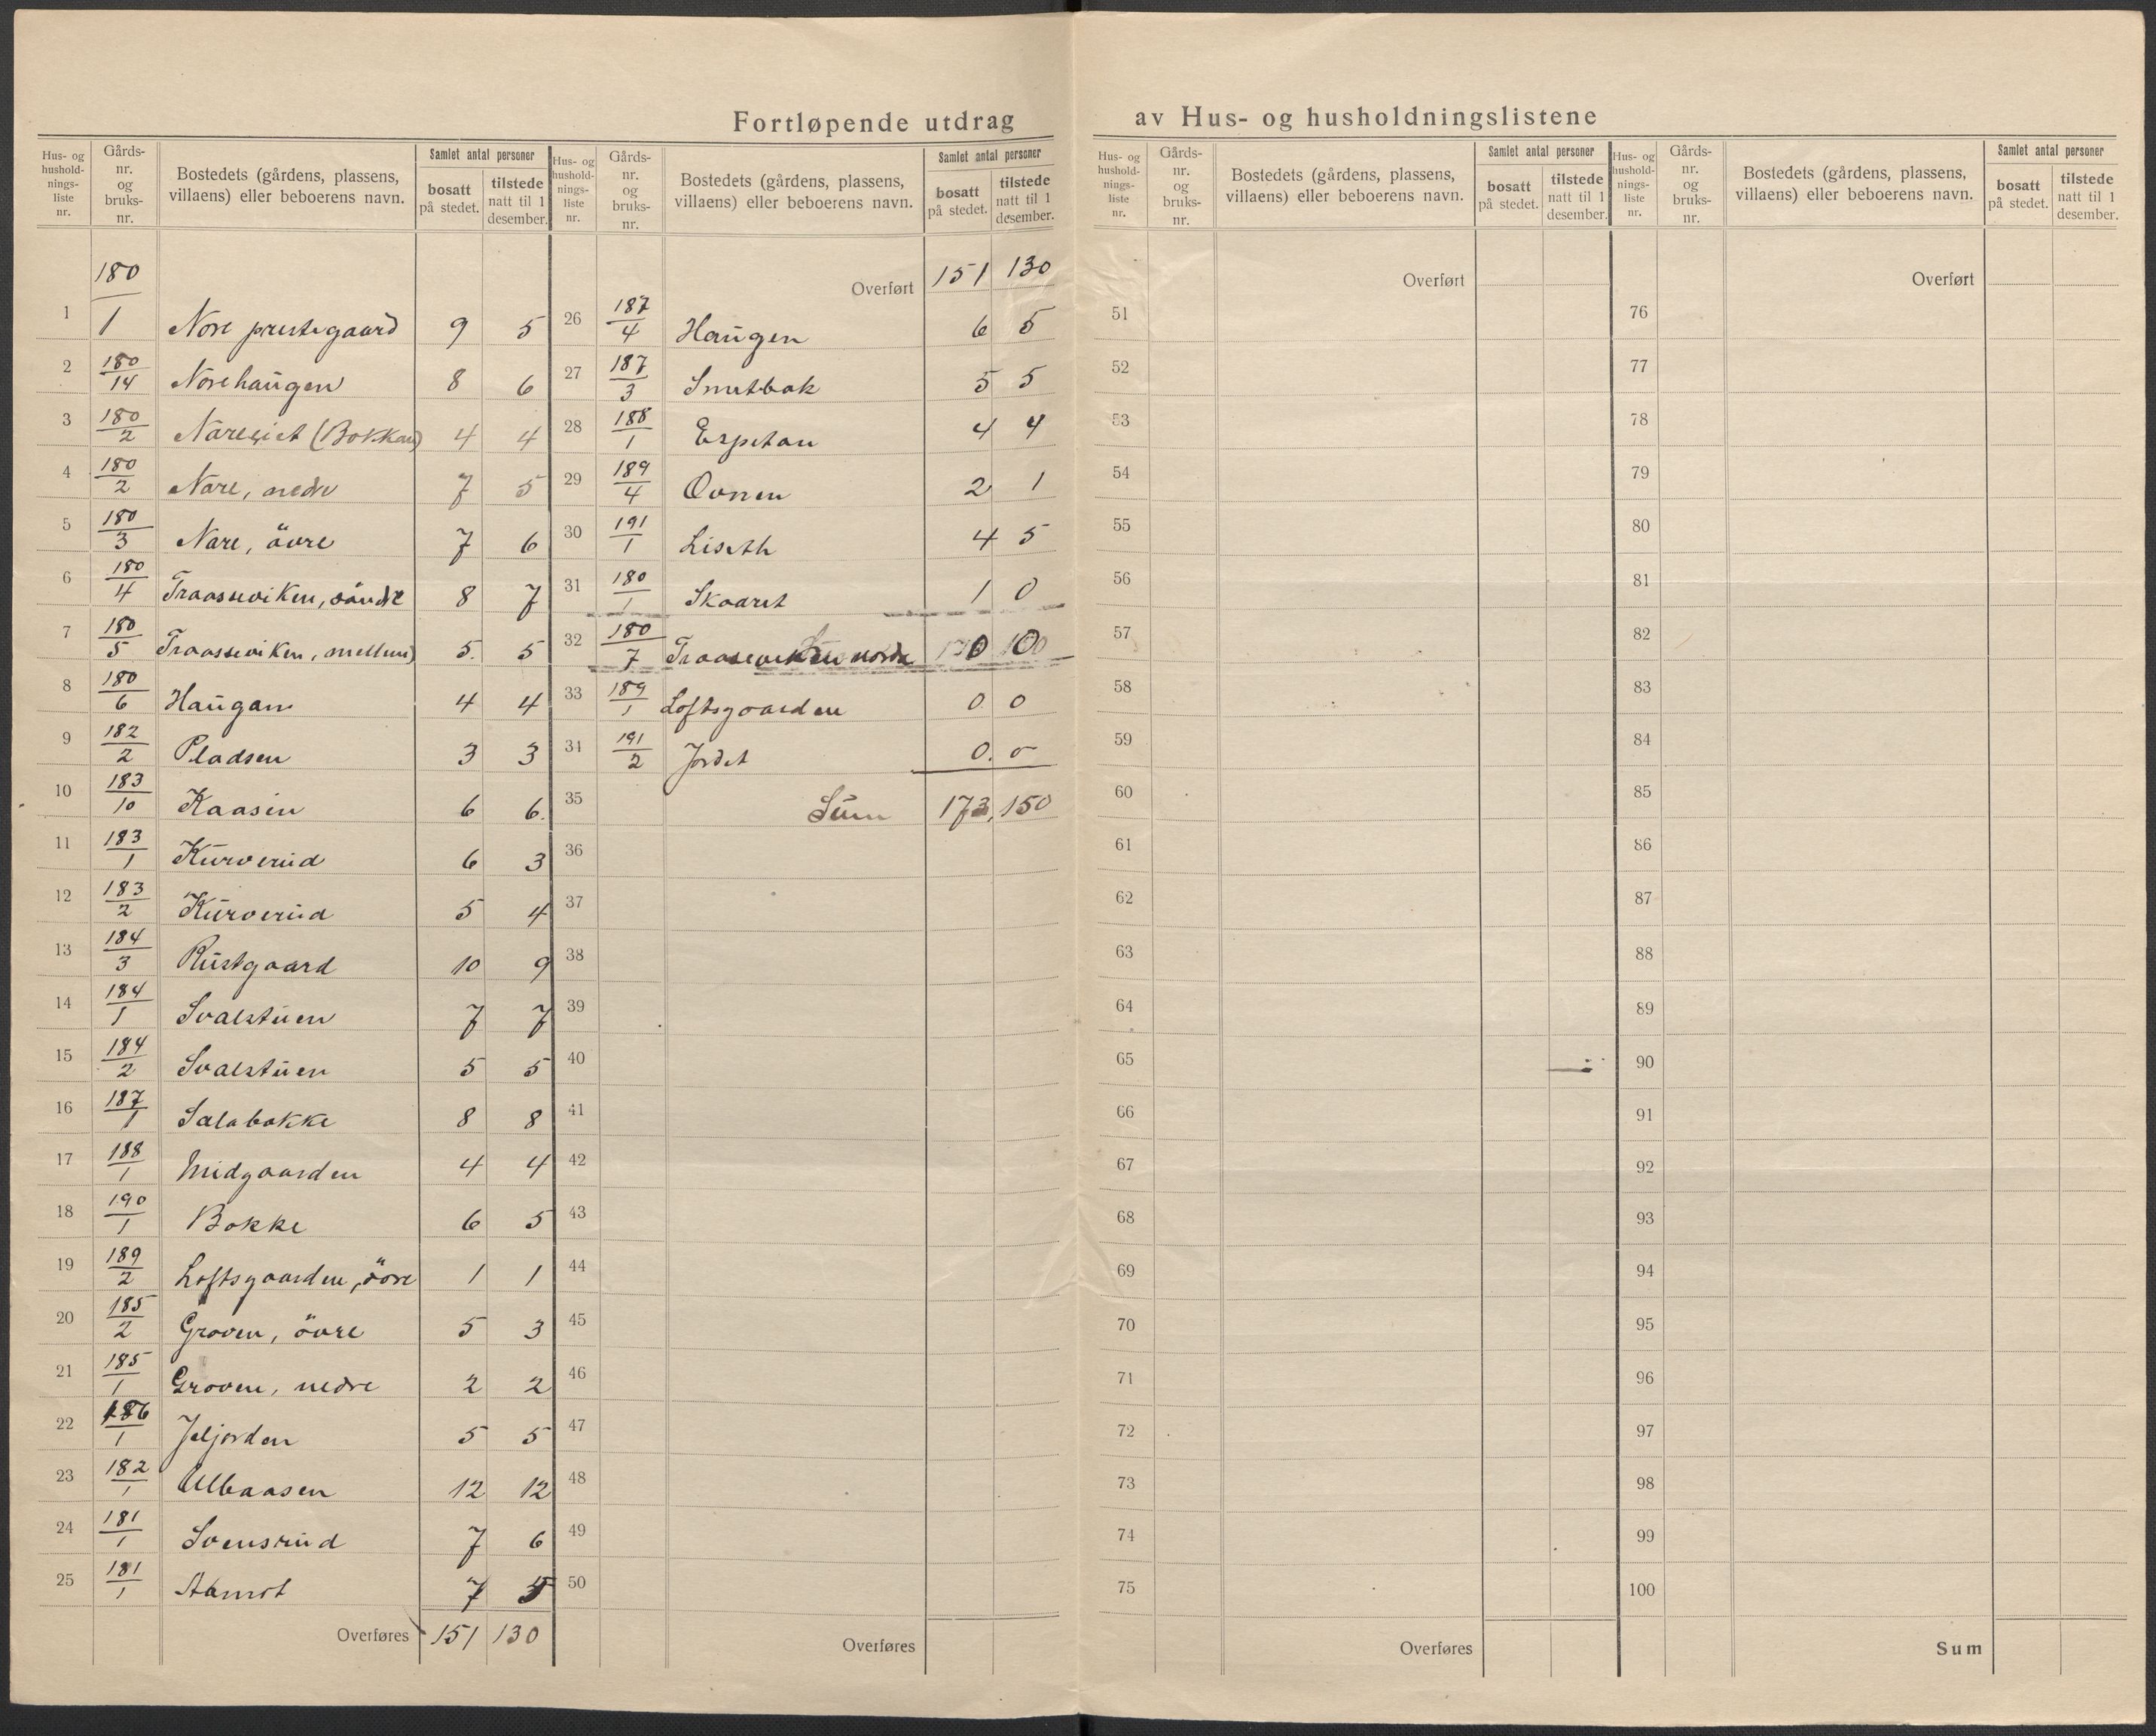 Fortløpende utdrag av Hus- og husholdningslistene
Hus- og hushold-nings-liste nr. Gårds-nr. og bruks-nr. Bostedets (gårdens, plassens, villaens) eller beboerens navn. Samlet antal personer bosatt på stedet. tilstede natt til 1 desember.
1 180/1 Nore prestegaard 9 5
2 180/14 Norehaugen 8 6
3 180/2 (Bokkan) 4 4
4 180/2 Nore, nedre 7 5
5 180/3 Nore, övre 7 6
6 180/4 Traasseviken, söndre 8 7
7 180/5 Traasseviken, mellem 5. 5
8 180/6 Haugan 4 4
9 182/2 Pladsen 3 3
10 183/10 Kaasin 6 6.
11 183/1 Kurverud 6 3
12 183/2 Kurverud 5 4
13 184/3 Rustgaard 10 9
14 184/1 Svalstuen 7 7
15 184/2 Svalstuen 5 5
16 187/1 Salabakke 8 8
17 188/1 Midgaarden 4 4
18 190/1 Bakke 6 5
19 189/2 Loftsgaarden, övre 1 1
20 185/2 Groven, övre 5 3
21 185/1 Groven, nedre 2 2
22 186/1 Jeljorden 5 5
23 182/1 Ulbaasen 12 12
24 181/1 Svensrud 7 6
25 181/1 Aamot 7 5
Overføres 151 130
Hus- og hushold-nings-liste nr. Gårds-nr. og bruks-nr. Bostedets (gårdens, plassens, villaens) eller beboerens navn. Samlet antal personer bosatt på stedet. tilstede natt til 1 desember.
Overført 151 130
26 187/4 Haugen 6 5
27 187/3 5 5
28 188/1 Espetan 4 4
29 189/4 Ovnen 2 1
30 191/1 Liseth 4 5
31 180/1 Skaaret 1 0
32 180/7 Traaseviken nordre 0 0
33 189/1 Loftsgaarden 0 0
34 191/2 Jordet 0. 0
35 Sum 173, 150
36
37
38
39
40
41
42
43
44
45
46
47
48
49
50
Overføres
Hus- og hushold-nings-liste nr. Gårds-nr. og bruks-nr. Bostedets (gårdens, plassens, villaens) eller beboerens navn. Samlet antal personer bosatt på stedet. tilstede natt til 1 desember.
Overført
51
52
53
54
55
56
57
58
59
60
61
62
63
64
65
66
67
68
69
70
71
72
73
74
75
Overføres
Hus- og hushold-nings-liste nr. Gårds-nr. og bruks-nr. Bostedets (gårdens, plassens, villaens) eller beboerens navn. Samlet antal personer bosatt på stedet. tilstede natt til 1 desember.
Overført
76
77
78
79
80
81
82
83
84
85
86
87
88
89
90
91
92
93
94
95
96
97
98
99
100
Sum